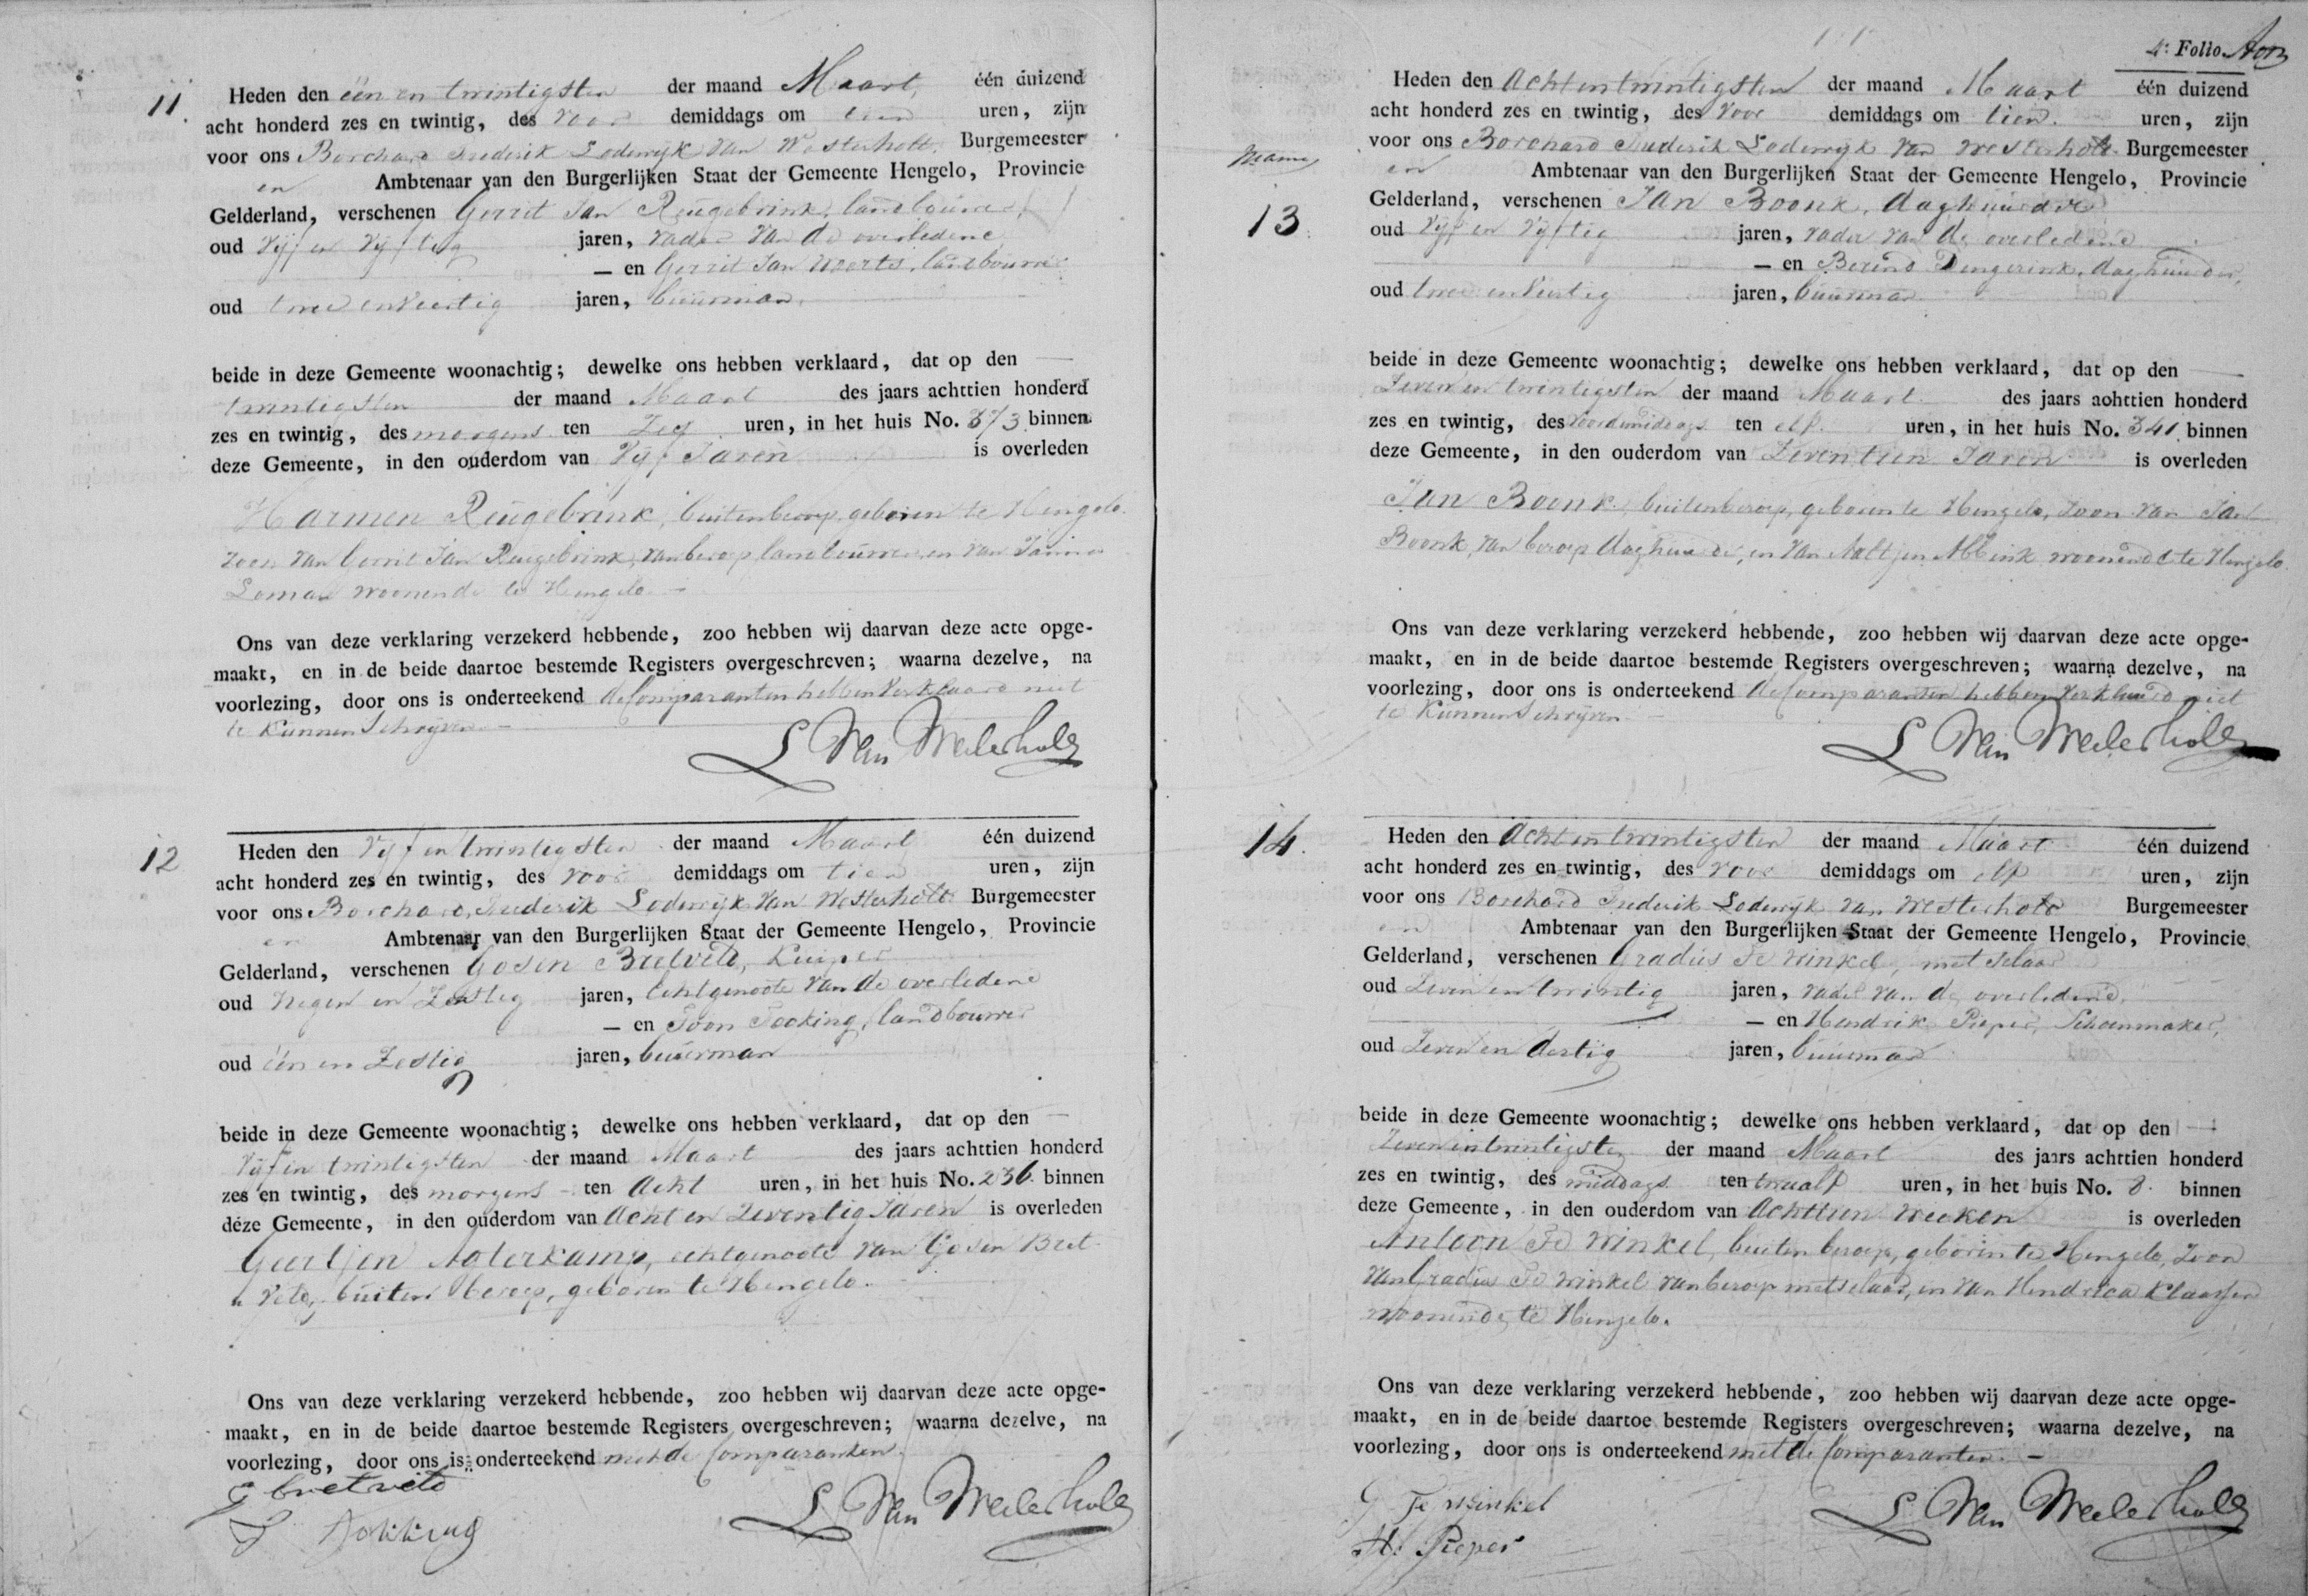 11.
Heden den één en twintigsten der maand Maart, één duizend
acht honderd zes en twintig, des voor demiddags om tien uren, zijn
voor ons Borchard Frederik Lodewijk van Westerholt Burgemeester
en Ambtenaar van den Burgerlijken Staat der Gemeente Hengelo, Provincie
Gelderland, verschenen Gerrit Jan Reugebrink, landbouwer,
oud Vijf en Vijftig jaren, vader van de overledene
— en Gerrit Jan landbouwer
oud twee en Veertig jaren, buurman.
beide in deze Gemeente woonachtig; dewelke ons hebben verklaard, dat op den
twintigsten der maand Maart des jaars achttien honderd
zes en twintig, des morgens ten Zes uren, in het huis No. 373 binnen
deze Gemeente, in den ouderdom van Vijf Jaren is overleden
Harmen Reugebrink, buiten beroep, geboren te Hengelo.
zoon van Gerrit Jan Reugebrink, van beroep landbouwer, en van
Loman woonende te Hengelo. —
Ons van deze verklaring verzekerd hebbende, zoo hebben wij daarvan deze acte opge-
maakt, en in de beide daartoe bestemde Registers overgeschreven; waarna dezelve, na
voorlezing, door ons is onderteekend de Comparanten hebben verklaard niet
te Kunnen Schrijven. —
L Van Westerholt
12
Heden den Vijf en twintigsten der maand Maart één duizend
acht honderd zes en twintig, des voor demiddags om tien uren, zijn
voor ons Borchard Frederik Lodewijk van Westerholt Burgemeester
en Ambtenaar van den Burgerlijken Staat der Gemeente Hengelo, Provincie
Gelderland, verschenen Gosen Bretveld, Kuiper
oud Negen en Zestig jaren, Echtgenoote van de overledene
— en landbouwer
oud één en Zestig jaren, buurman
beide in deze Gemeente woonachtig; dewelke ons hebben verklaard, dat op den —
Vijf en twintigsten der maand Maart des jaars achttien honderd
zes en twintig, des morgens ten Acht uren, in het huis No. 236 binnen
deze Gemeente, in den ouderdom van Acht en Zeventig Jaren is overleden
Geertjen echtgenoote van Gosen Bret-
veld, buiten beroep, geboren te Hengelo. —
Ons van deze verklaring verzekerd hebbende, zoo hebben wij daarvan deze acte opge-
maakt, en in de beide daartoe bestemde Registers overgeschreven; waarna dezelve, na
voorlezing, door ons is onderteekend met de Comparanten.
G bretveld
L Van Westerholt
4e Folio
13.
Heden den Achtentwintigsten der maand Maart één duizend
acht honderd zes en twintig, des voor demiddags om tien uren, zijn
voor ons Borchard Frederik Lodewijk van Westerholt Burgemeester
en Ambtenaar van den Burgerlijken Staat der Gemeente Hengelo, Provincie
Gelderland, verschenen Jan Boonk, daghuurder
oud Vijf en Vijftig jaren, vader van de overledene
— en Berend Dengerink, daghuurder,
oud twee en Veertig jaren, buurman
beide in deze Gemeente woonachtig; dewelke ons hebben verklaard, dat op den —
Zeven en twintigsten der maand Maart des jaars achttien honderd
zes en twintig, des voordemiddags ten elf uren, in het huis No. 341 binnen
deze Gemeente, in den ouderdom van Zeventien Jaren is overleden
Jan Boonk, buiten beroep, geboren te Hengelo, Zoon van Jan
Boonk, van beroep daghuurder, en van Aaltjen Abbink woonende te Hengelo.
Ons van deze verklaring verzekerd hebbende, zoo hebben wij daarvan deze acte opge-
maakt, en in de beide daartoe bestemde Registers overgeschreven; waarna dezelve, na
voorlezing, door ons is onderteekend de Comparanten hebben verklaard niet
te Kunnen Schrijven. —
L Van Westerholt
14.
Heden den Achtentwintigsten der maand Maart één duizend
acht honderd zes en twintig, des voor demiddags om elf uren, zijn
voor ons Borchard Frederik Lodewijk van Westerholt Burgemeester
en Ambtenaar van den Burgerlijken Staat der Gemeente Hengelo, Provincie
Gelderland, verschenen Gradus Te Winkel, metselaar
oud Zeven en twintig jaren, vader van de overledene,
— en Hendrik Pieper, Schoenmaker,
oud Zeven en dertig jaren, buurman
beide in deze Gemeente woonachtig; dewelke ons hebben verklaard, dat op den —
Zevenentwintigsten der maand Maart des jaars achttien honderd
zes en twintig, des middags ten twaalf uren, in het huis No. 8. binnen
deze Gemeente, in den ouderdom van Achttien weeken is overleden
Antoon Te Winkel, buiten beroep, geboren te Hengelo, Zoon
van Gradus Te Winkel van beroep metselaar, en van Hendrica Klaassen
woonende te Hengelo.
Ons van deze verklaring verzekerd hebbende, zoo hebben wij daarvan deze acte opge-
maakt, en in de beide daartoe bestemde Registers overgeschreven; waarna dezelve, na
voorlezing, door ons is onderteekend met de Comparanten. —
G Te Winkel
H. Pieper
L Van Westerholt